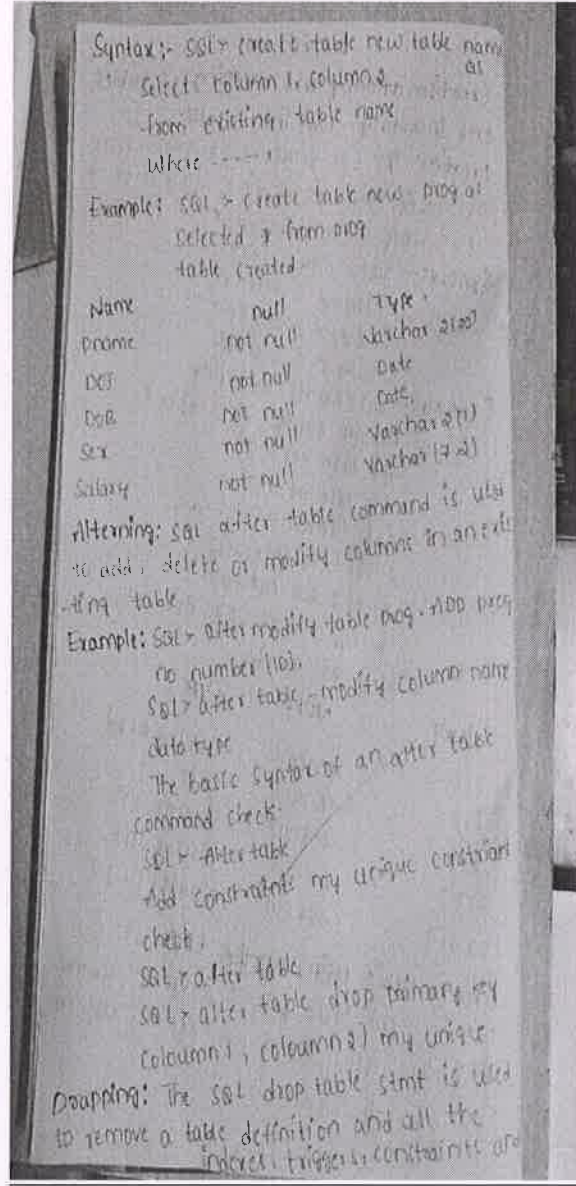 Syntax:- SQL> create table new table name as
Select column 1, column 2
from existing table name
Where ----,
Example: SQL > create table new prog as
Selected * from prog
table created
Name null Type
Pname not null Varchar 2(20)
DOJ not null Date
DOB not null Date
Sex not null Varchar 2(1)
Salary not null Varchar (7,2)
Alterning: SQL alter table command is used
to add, delete or modify columns in an exis
-ting table
Example: SQL > alter modify table prog. ADD prog
no number (10);
SQL> alter table, modify column name
data type
The basic syntax of an alter table
command check.
SQL > Alter table
Add constraints my unique constriant
check,
SQL > alter table
SQL > alter table drop primary key
coloumn1, coloumn2) my unique
Drapping: The SQL drop table stmt is used
to remove a table definition and all the
indexes, triggers, constraints and